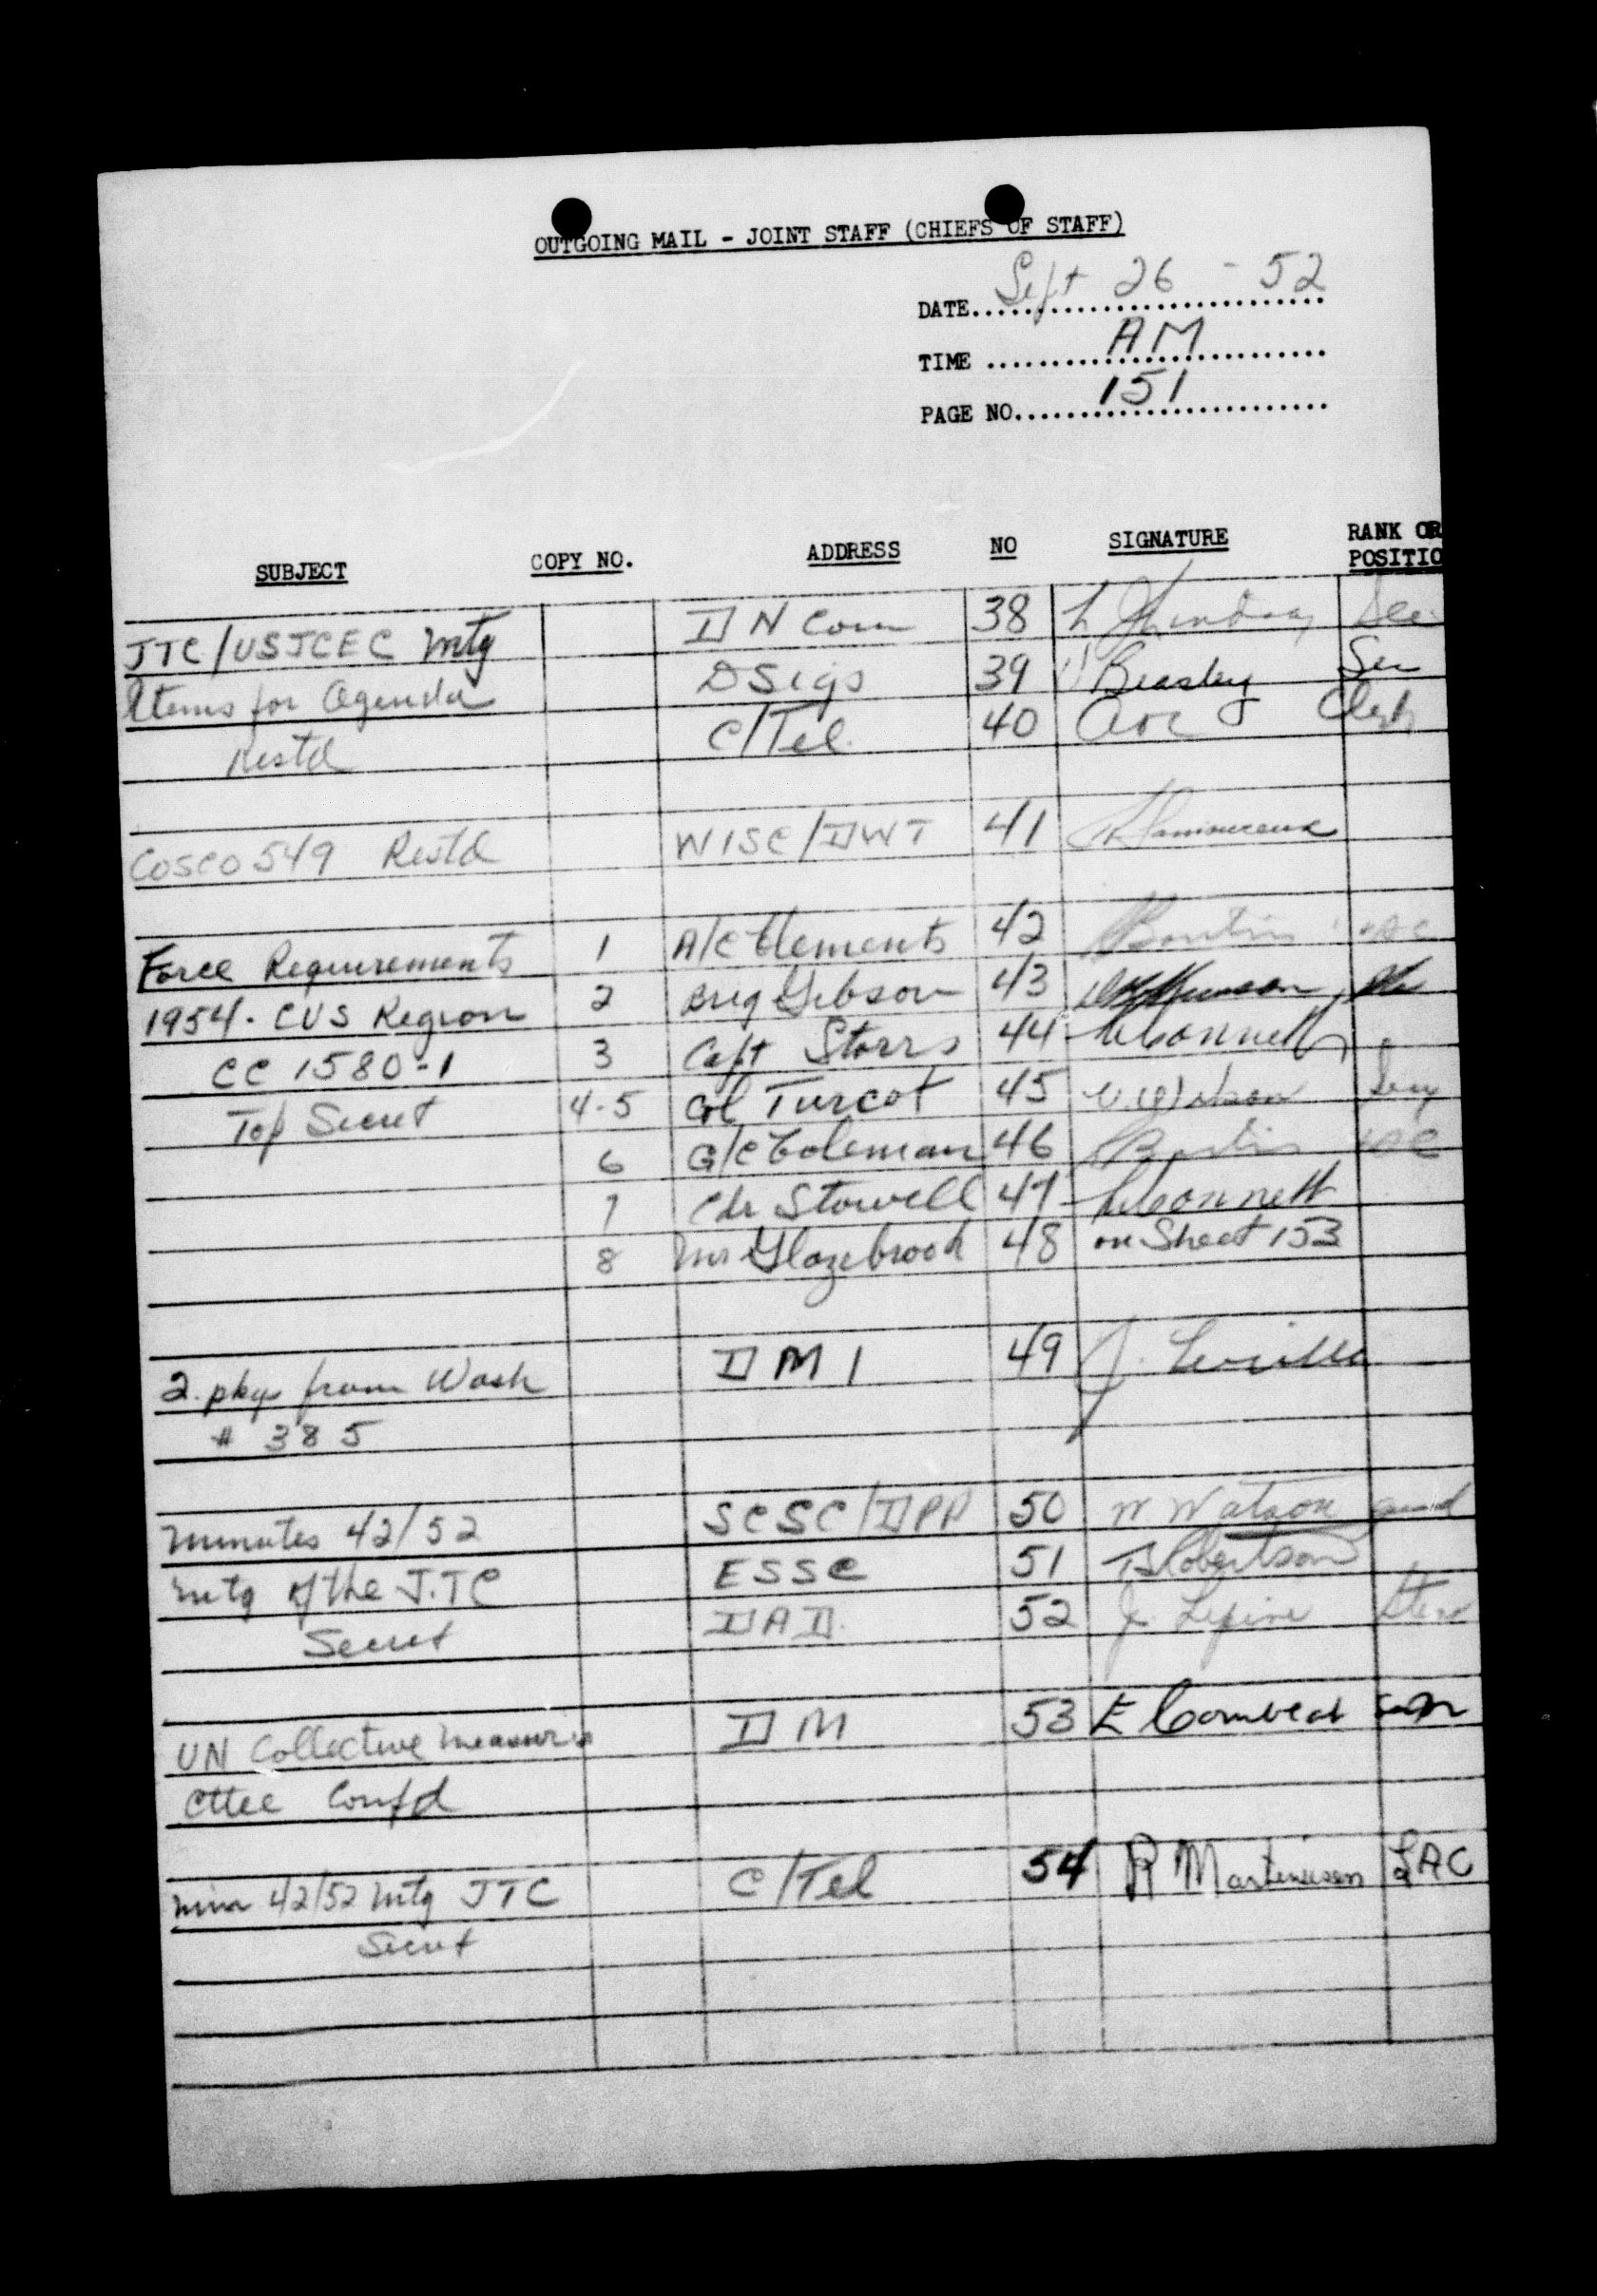 OUTGOING MAIL - JOINT STAFF (CHIEFS OF STAFF)
DATE Sept 26 - 52
TIME AM
PAGE NO. 151
SUBJECT COPY NO. ADDRESS NO SIGNATURE RANK OR POSITIO
JTC/USJCEC Mtg DN Com 38
Items for Agenda D Sigs 39 Beasley
Restd C/Tel. 40 Clerk
Cosco 549 Restd WISC/DWT 41
Force Requirements 1 A/C Clements 42
1954 - CUS Region 2 Brig Gibson 43
CC 1580-1 3 Capt Storrs 44
Top Secret 4-5 Col Turcot 45
6 G/C Coleman 46
7 Cdr Stowell 47
8 Mr Glazebrook 48 on Sheet 153
2 pkgs from Wash DMI 49
# 385
Minutes 42/52 SCSC/DPR 50 W Watson
mtg of the J.TC ESSC 51 Robertson
Secret DAD. 52 J. Lepine
UN Collective Measures DM 53 E
Cttee Confd
Min 42/52 Mtg JTC C/Tel 54 R LAC
Secret